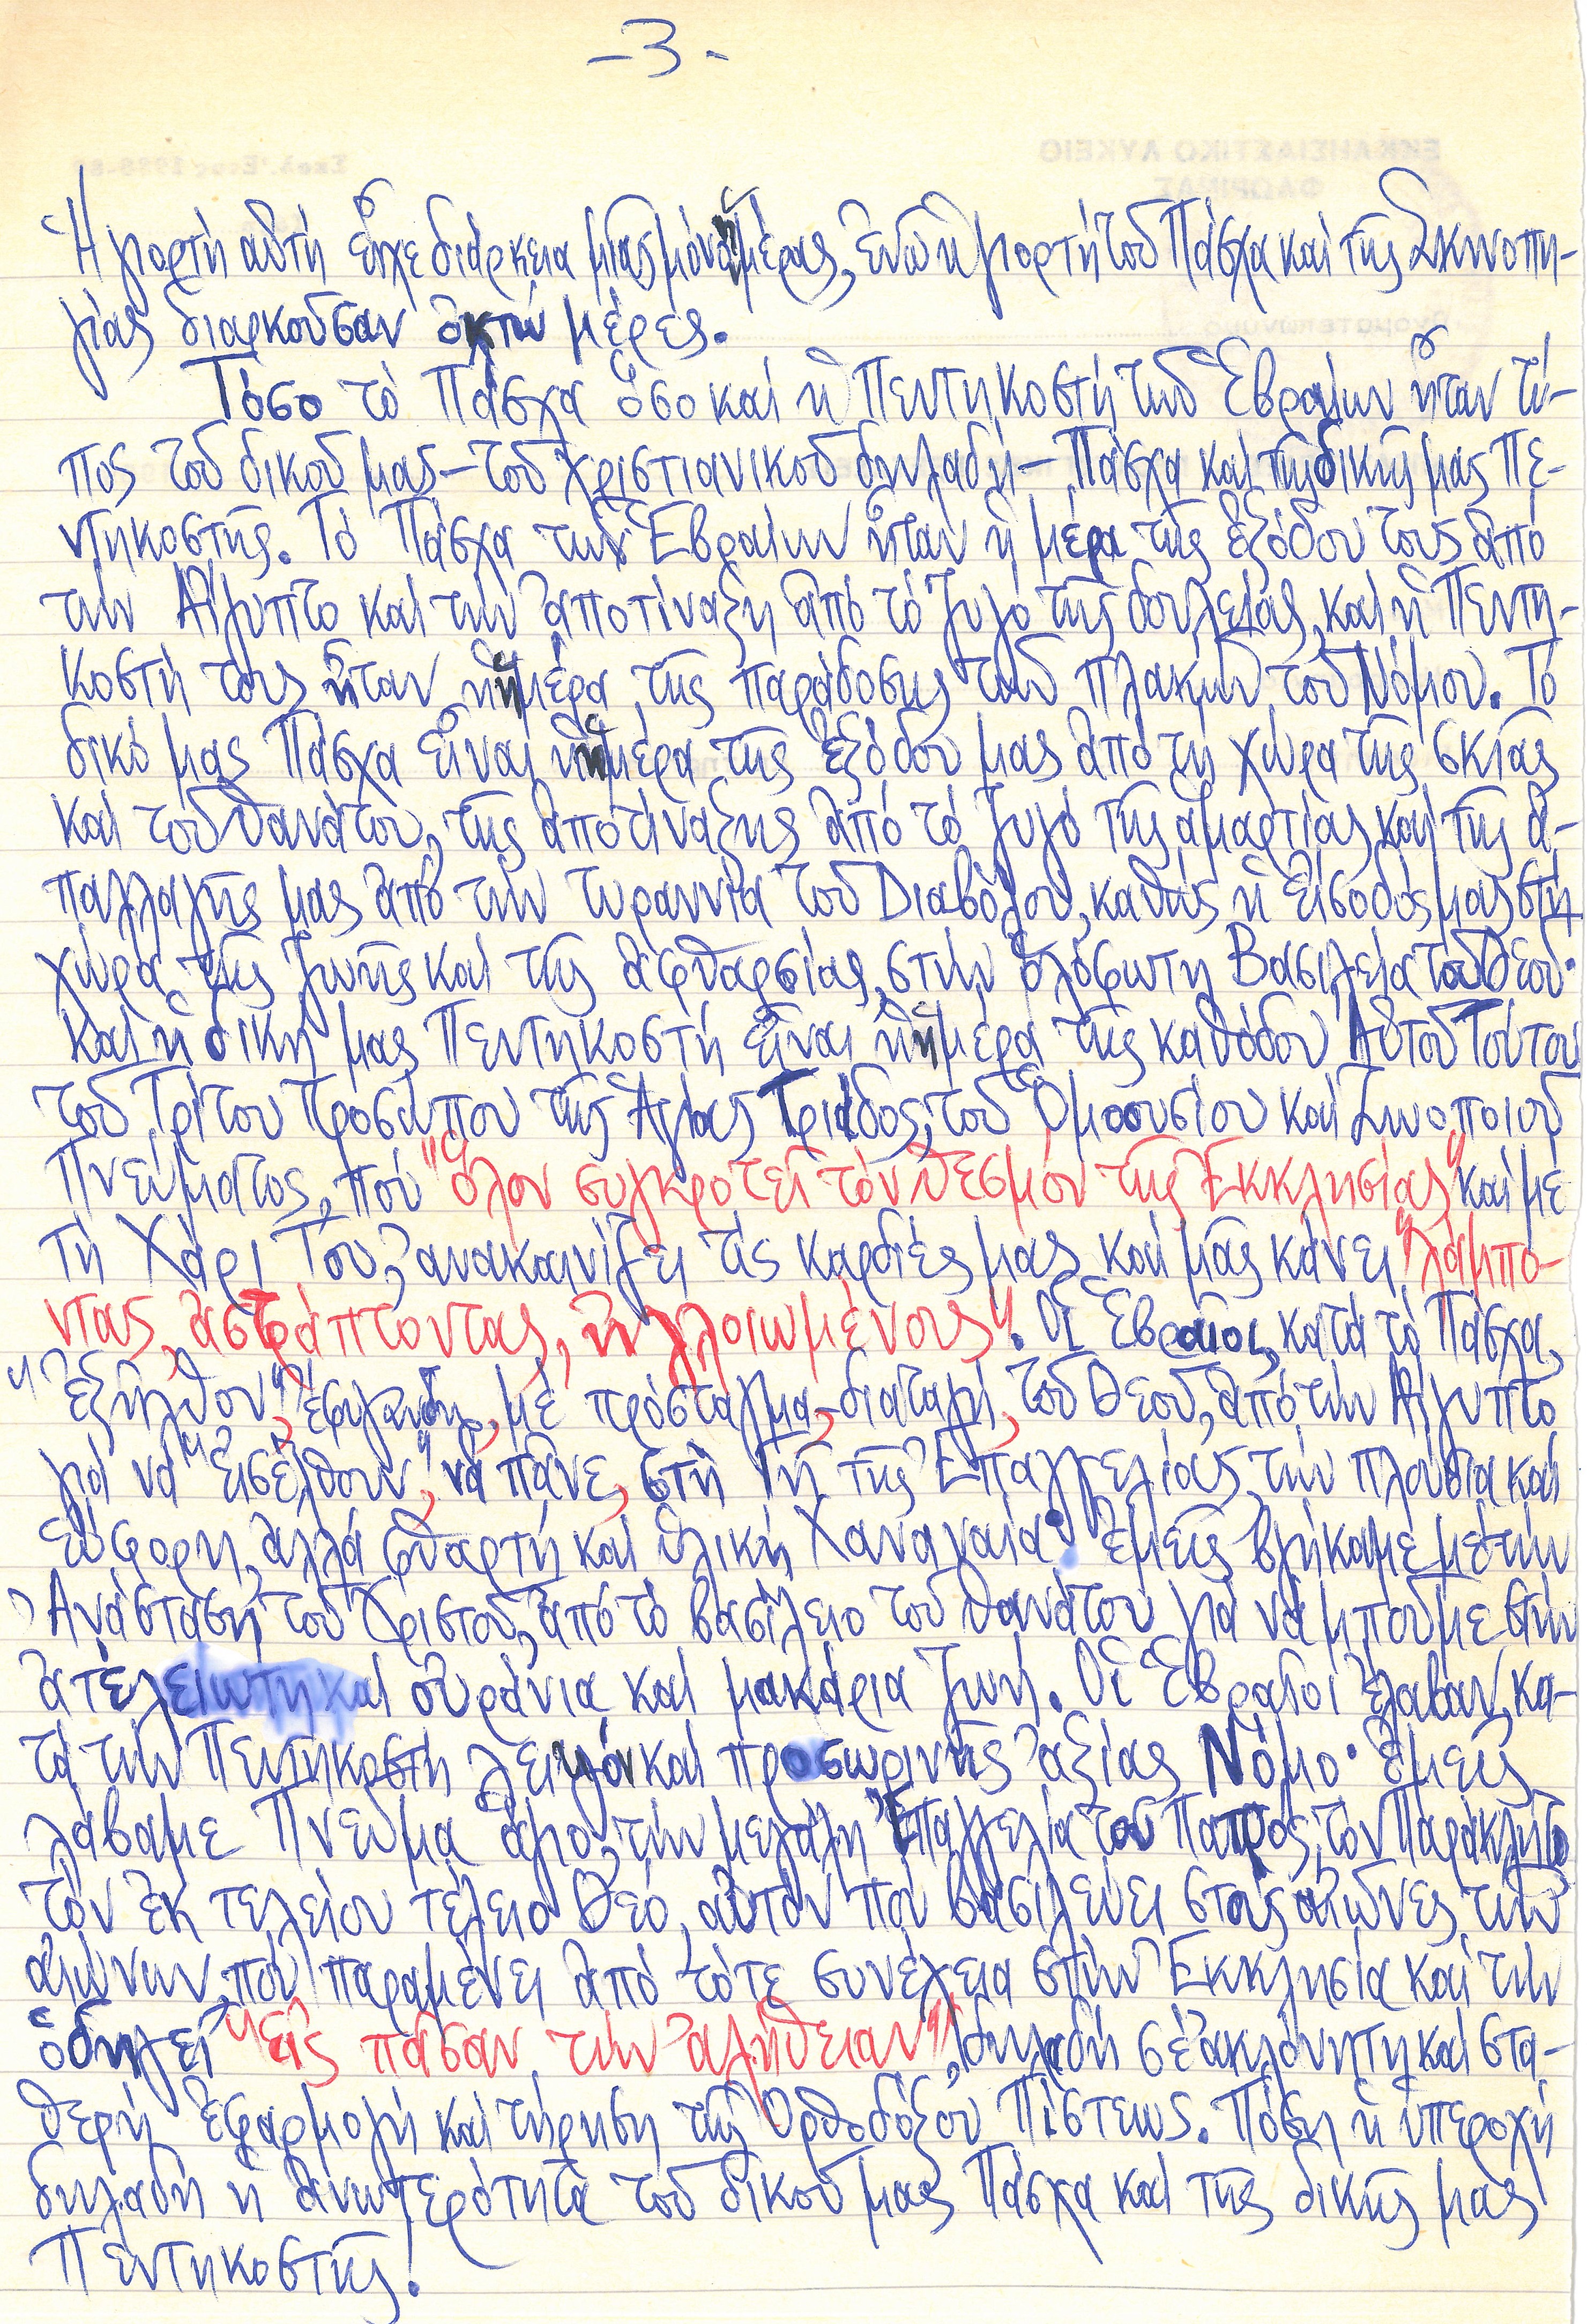 -3-
Ἡ γιορτή αὐτή εἶχε διάρκεια μιᾶς μόνο ἡμέρας, ἐνῶ ἡ γιορτή τοῦ Πάσχα καί τῆς Σκηνοπη-
γίας διαρκοῦσαν ὀκτώ μέρες.
Τόσο τό Πάσχα ὅσο καί ἡ Πεντηκοστή τῶν Ἑβραίων ἦταν τύ-
πος τοῦ δικοῦ μας – τοῦ χριστιανικοῦ δηλαδή – Πάσχα καί τῆς δικῆς μας Πε-
ντηκοστῆς. Τό Πάσχα τῶν Ἑβραίων ἦταν ἡ μέρα τῆς ἐξόδου τους ἀπό
τήν Αἴγυπτο καί τήν ἀποτίναξη ἀπό τό ζυγό τῆς δουλείας, καί ἡ Πεντη-
κοστή τους ἦταν ἡ ἡμέρα τῆς παράδοσης τῶν πλακῶν τοῦ Νόμου. Τό
δικό μας Πάσχα εἶναι ἡ ἡμέρα τῆς ἐξόδου μας ἀπό τή χώρα τῆς σκιᾶς
καί τοῦ θανάτου, τῆς ἀποτίναξης ἀπό τό ζυγό τῆς ἁμαρτίας καί τῆς ἀ-
παλλαγῆς μας ἀπό τήν τυραννία τοῦ Διαβόλου, καθώς ἡ εἴσοδός μας στή
χώρα τῆς ζωῆς καί τῆς ἀφθαρσίας, στήν ὁλόφωτη Βασιλεία τοῦ Θεοῦ·
καί ἡ δική μας Πεντηκοστή εἶναι ἡ ἡμέρα τῆς καθόδου Αὐτοῦ Τούτου
τοῦ Τρίτου Προσώπου τῆς Ἁγίας Τριάδος, τοῦ Ὁμοουσίου καί Ζωοποιοῦ
Πνεύματος, πού "ὅλον συγκροτεῖ τόν θεσμόν τῆς Ἐκκλησίας" καί μέ
τή Χάρι Του, ἀνακαινίζει τίς καρδιές μας καί μᾶς κάνει "λάμπο-
ντας, ἀστράπτοντας, ἠλλοιωμένους". Οἱ Ἑβραῖοι, κατά τό Πάσχα,
"ἐξῆλθον", ἔφυγαν δηλ., μέ πρόσταγμα, διαταγή, τοῦ Θεοῦ, ἀπό τήν Αἴγυπτο
γιά νά "εἰσέλθουν", νά πᾶνε, στή Γῆ τῆς Ἐπαγγελίας, τήν πλούσια καί
εὔφορη, ἀλλά φθαρτή καί ὑλική Χαναναία· ἐμεῖς βγήκαμε μέ τήν
Ἀνάσταση τοῦ Χριστοῦ, ἀπό τό βασίλειο τοῦ θανάτου γιά νά μποῦμε στήν
ἀτέλειωτη καί οὐράνια καί μακάρια ζωή. Οἱ Ἑβραῖοι ἔλαβαν, κα-
τά τήν Πεντηκοστή καί προσωρινῆς ἀξίας Νόμο· ἐμεῖς
λάβαμε Πνεῦμα Ἅγιο, τήν μεγάλη Ἐπαγγελία τοῦ Πατρός, τόν Παράκλητο
τόν ἐκ τελείου τέλειο Θεό, αὐτόν πού βασιλεύει στούς αἰῶνες τῶν
αἰώνων, πού παραμένει ἀπό τότε συνέχεια στήν Ἐκκλησία καί τήν
ὁδηγεῖ "εἰς πᾶσαν τήν ἀλήθειαν", δηλαδή σέ ἀκλόνητη καί στα-
θερή ἐφαρμογή καί τήρηση τῆς Ὀρθοδόξου Πίστεως. Πόση ἡ ὑπεροχή
δηλαδή ἡ ἀνωτερότητα τοῦ δικοῦ μας Πάσχα καί τῆς δικῆς μας
Πεντηκοστῆς!